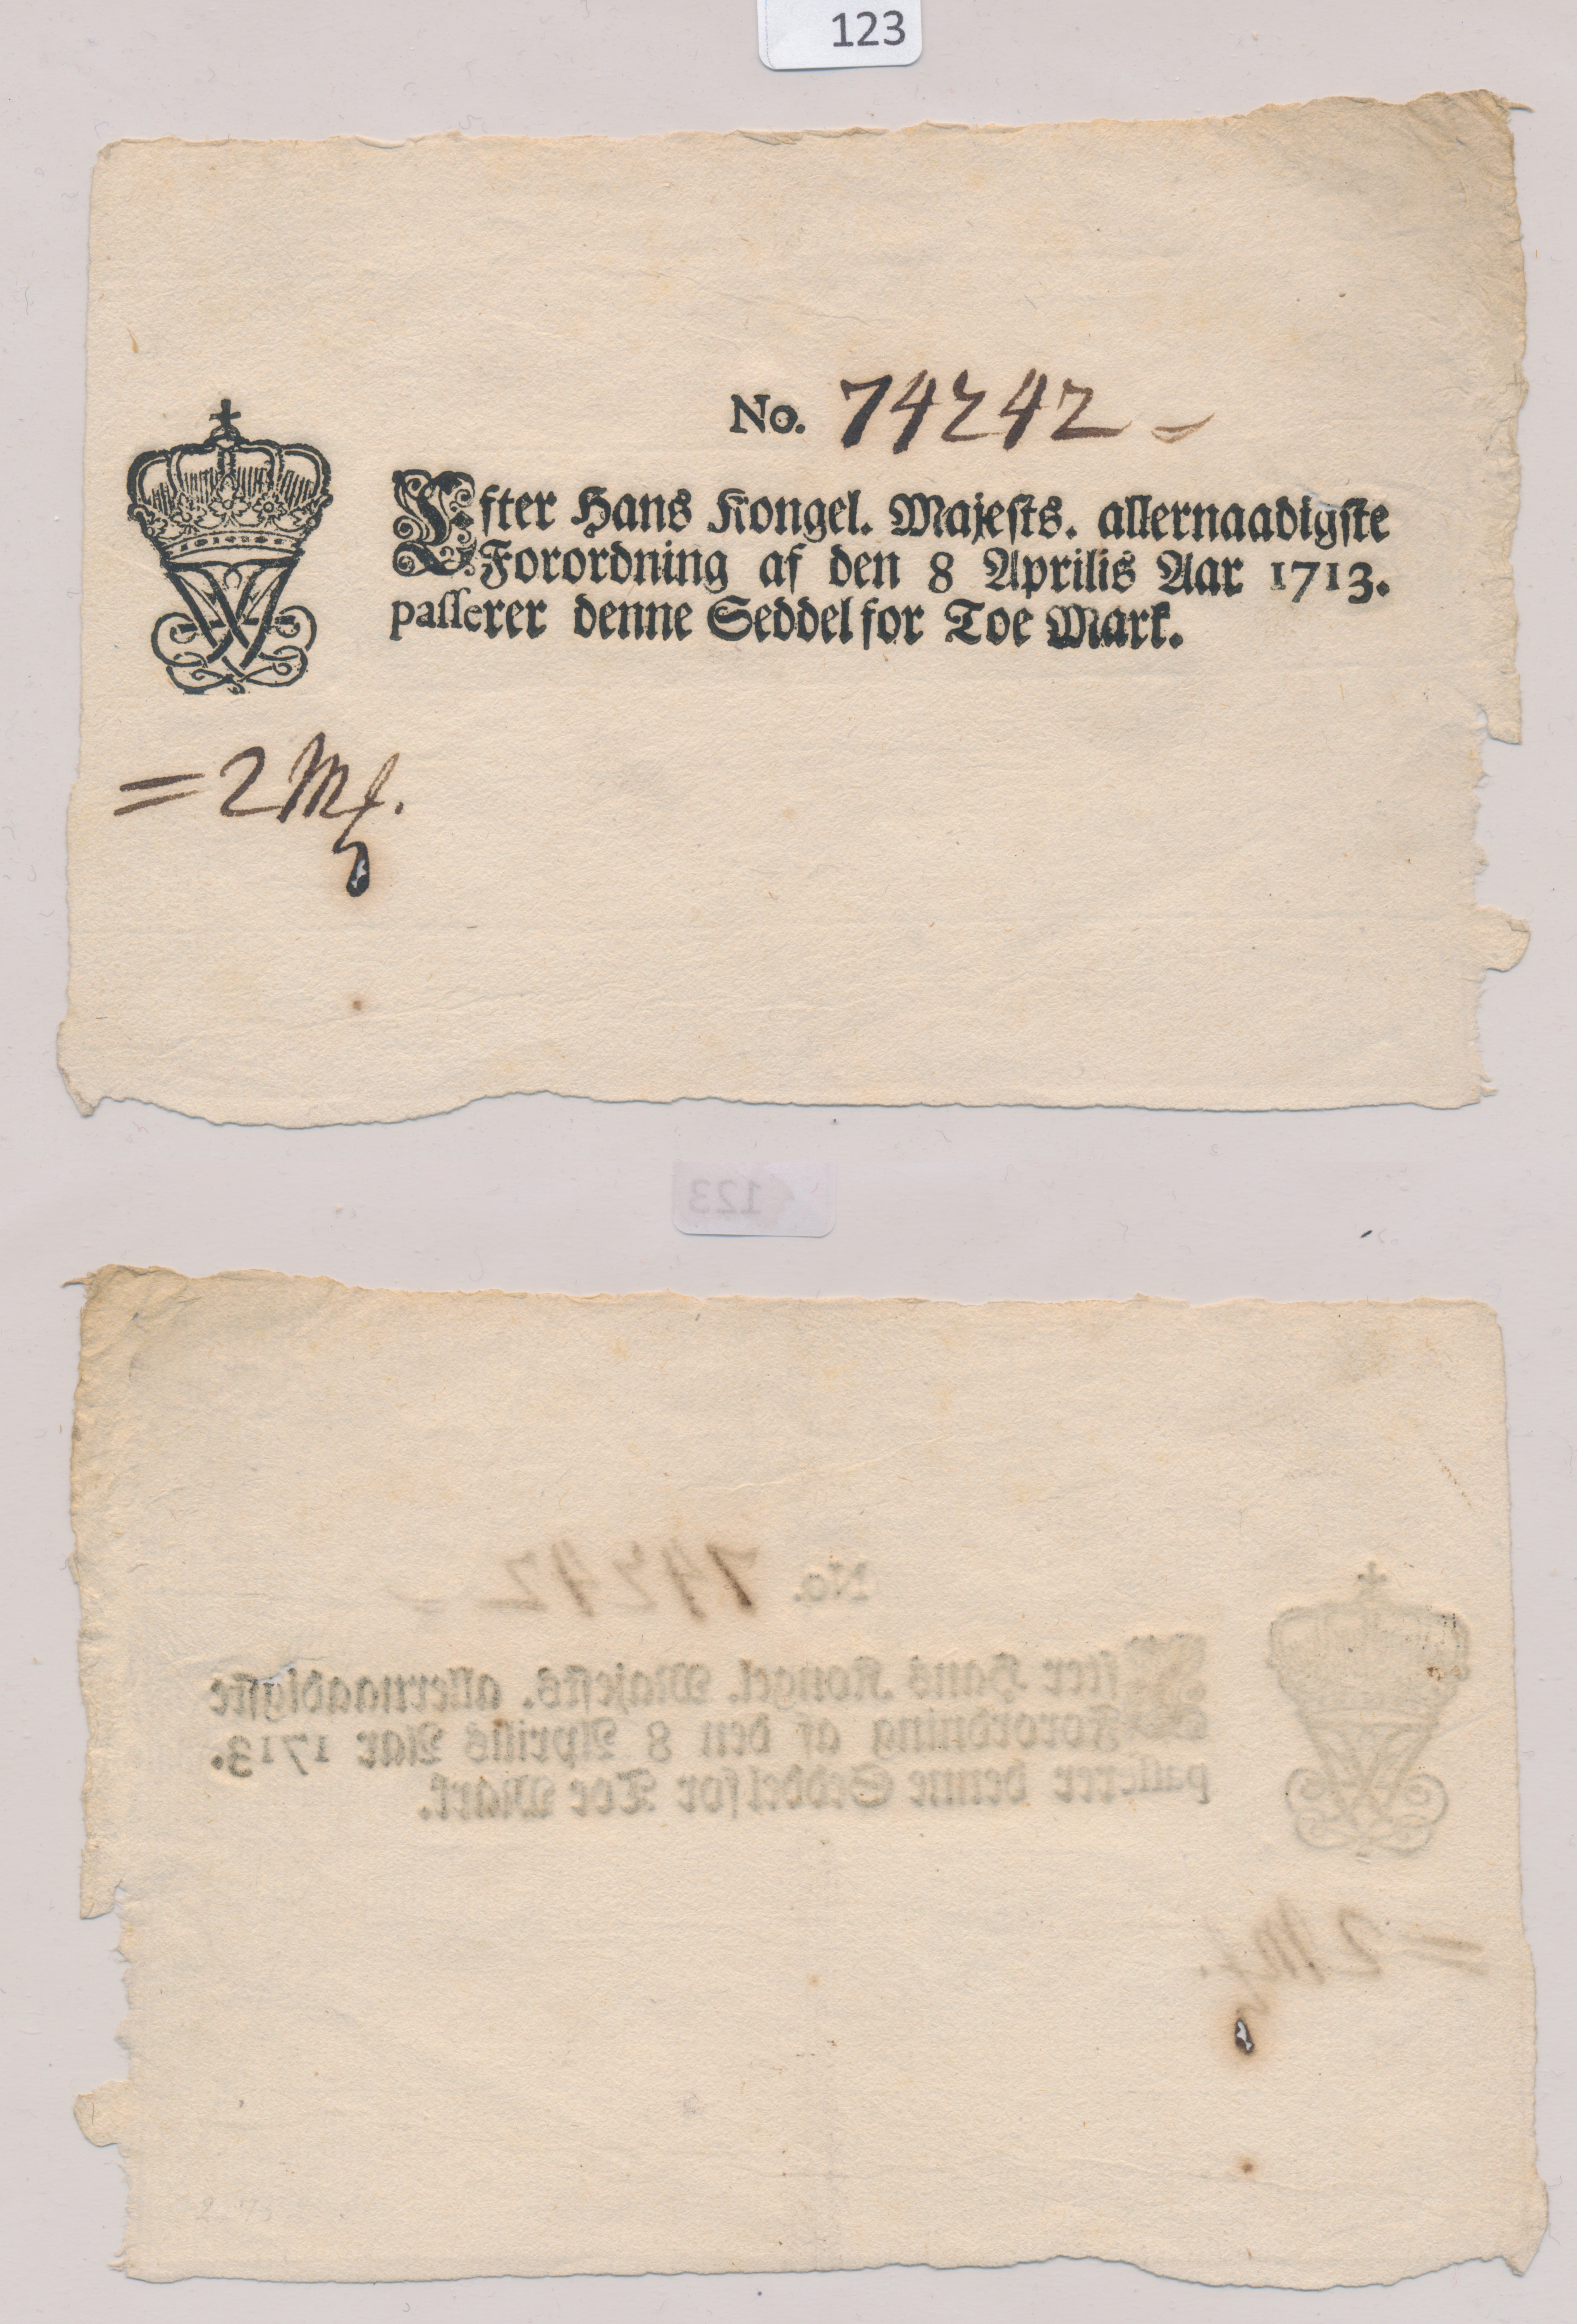 123
No. 74242 =
Efter Hans Kongel. Majeſts. allernaadigſte
Forordning af den 8 Aprilis Aar 1713.
paſſerer denne Seddel for Toe Mark.
= 2 Mk.
123
No. 74242 =
Efter Hans Kongel. Majeſts. allernaadigſte
Forordning af den 8 Aprilis Aar 1713.
paſſerer denne Seddel for Toe Mark.
= 2 Mk.